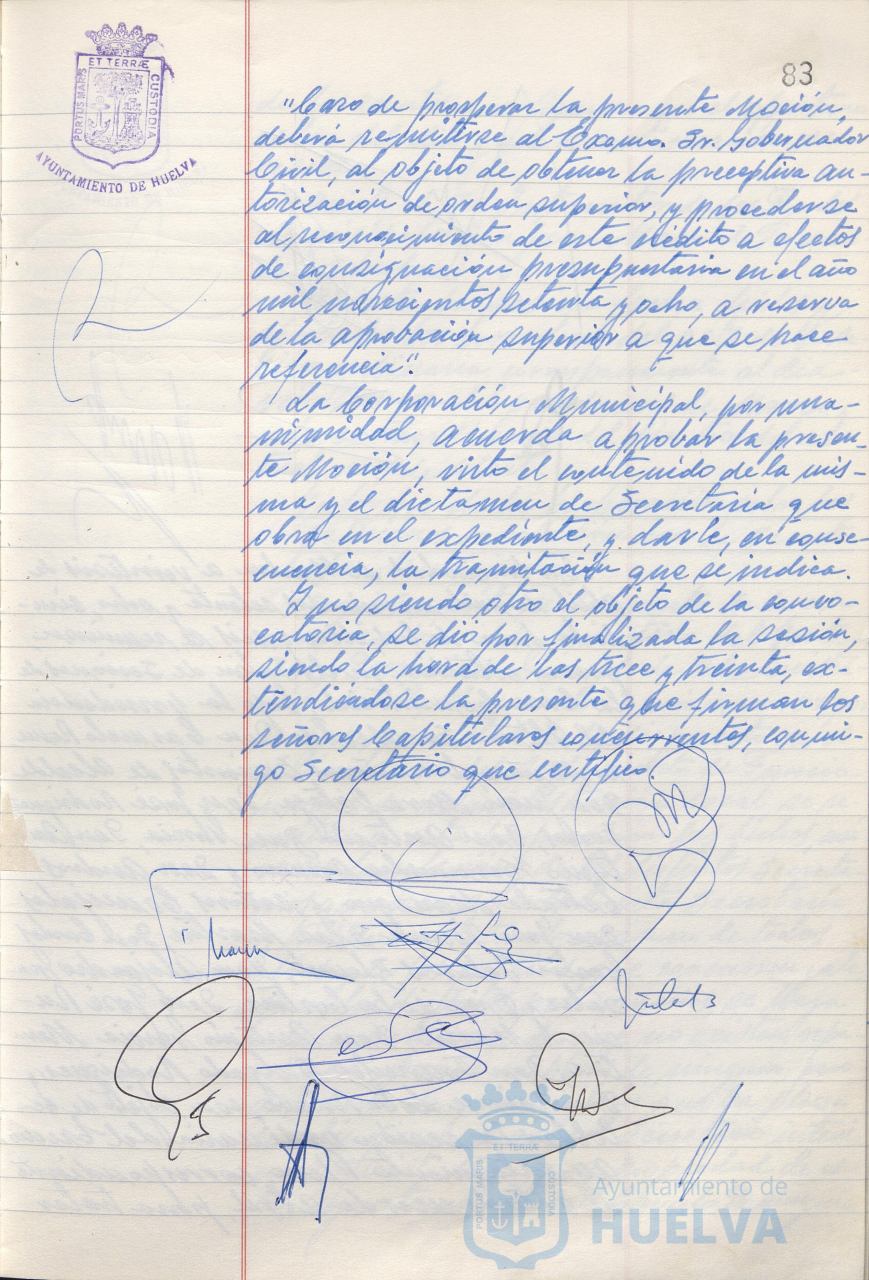 83
PORTUS MARIS
ET TERRÆ
CUSTODIA
AYUNTAMIENTO DE HUELVA
"Caso de prosperar la presente Moción,
deberá remitirse al Excmo. Sr. Gobernador
Civil, al objeto de obtener la preceptiva au-
torización de orden superior, y procederse
al reconocimiento de este crédito a efectos
de consignación presupuestaria en el año
mil novecientos setenta y ocho, a reserva
de la aprobación superior a que se hace
referencia".
La Corporación Municipal, por una-
nimidad, acuerda aprobar la presen-
te Moción, visto el contenido de la mis-
ma y el dictamen de Secretaría que
obra en el expediente, y darle, en conse-
cuencia, la tramitación que se indica.
Y no siendo otro el objeto de la convo-
catoria, se dió por finalizada la sesión,
siendo la hora de las trece y treinta, ex-
tendiéndose la presente que firman los
señores Capitulares concurrentes, conmi-
go Secretario que certifico.
PORTUS MARIS
ET TERRÆ
CUSTODIA
Ayuntamiento de
HUELVA